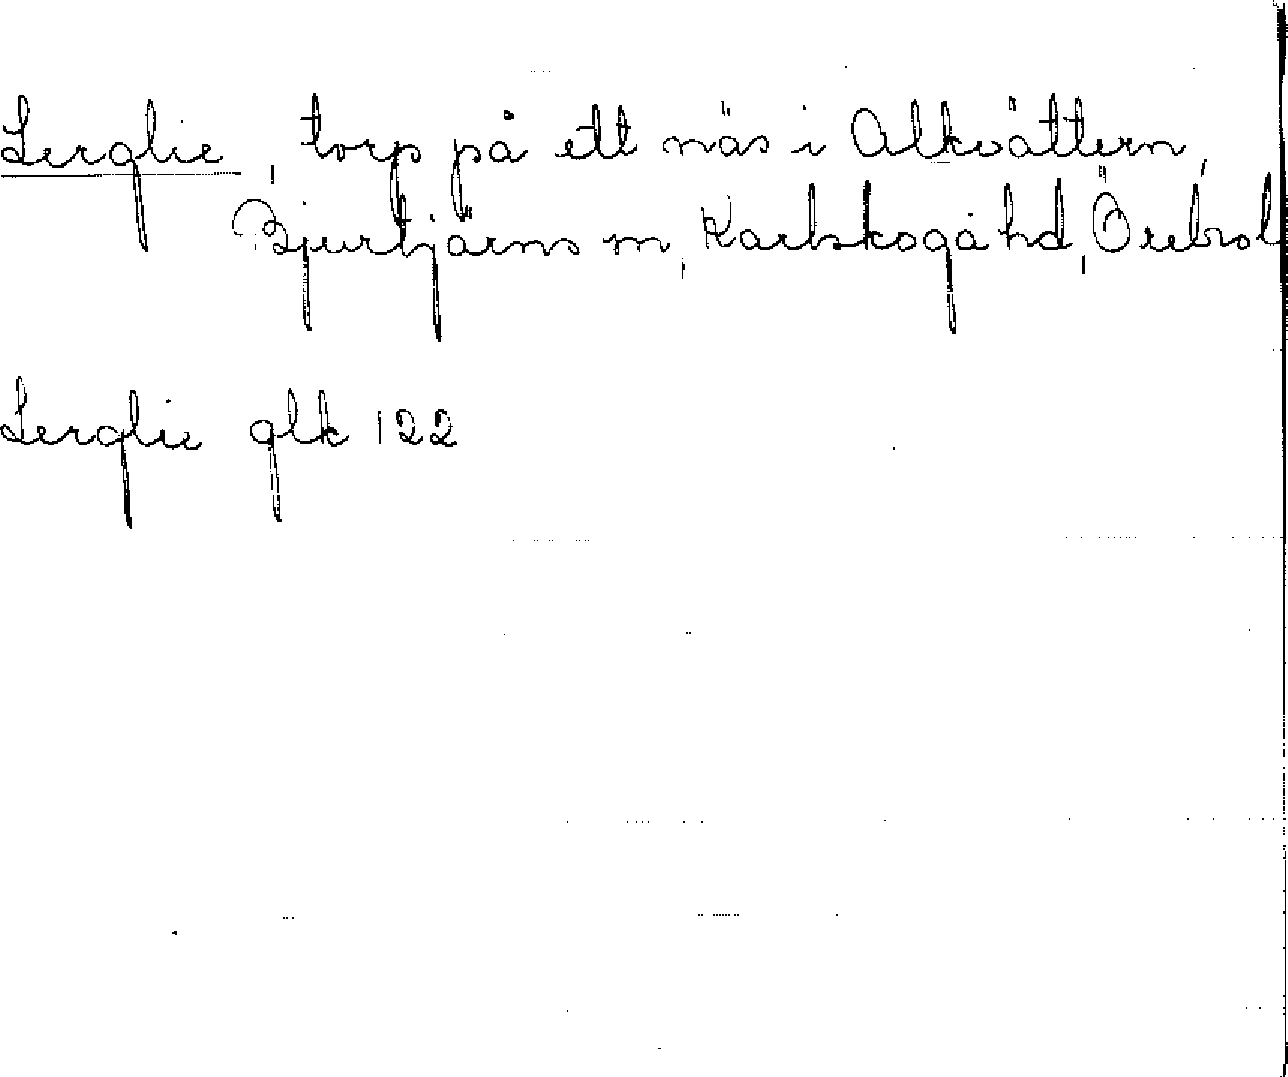 Lerglie, torp på ett näs i Alkvättern,
Bjurtjärns sn, Karlskoga hd, Örebro l
Lerglie glk 122